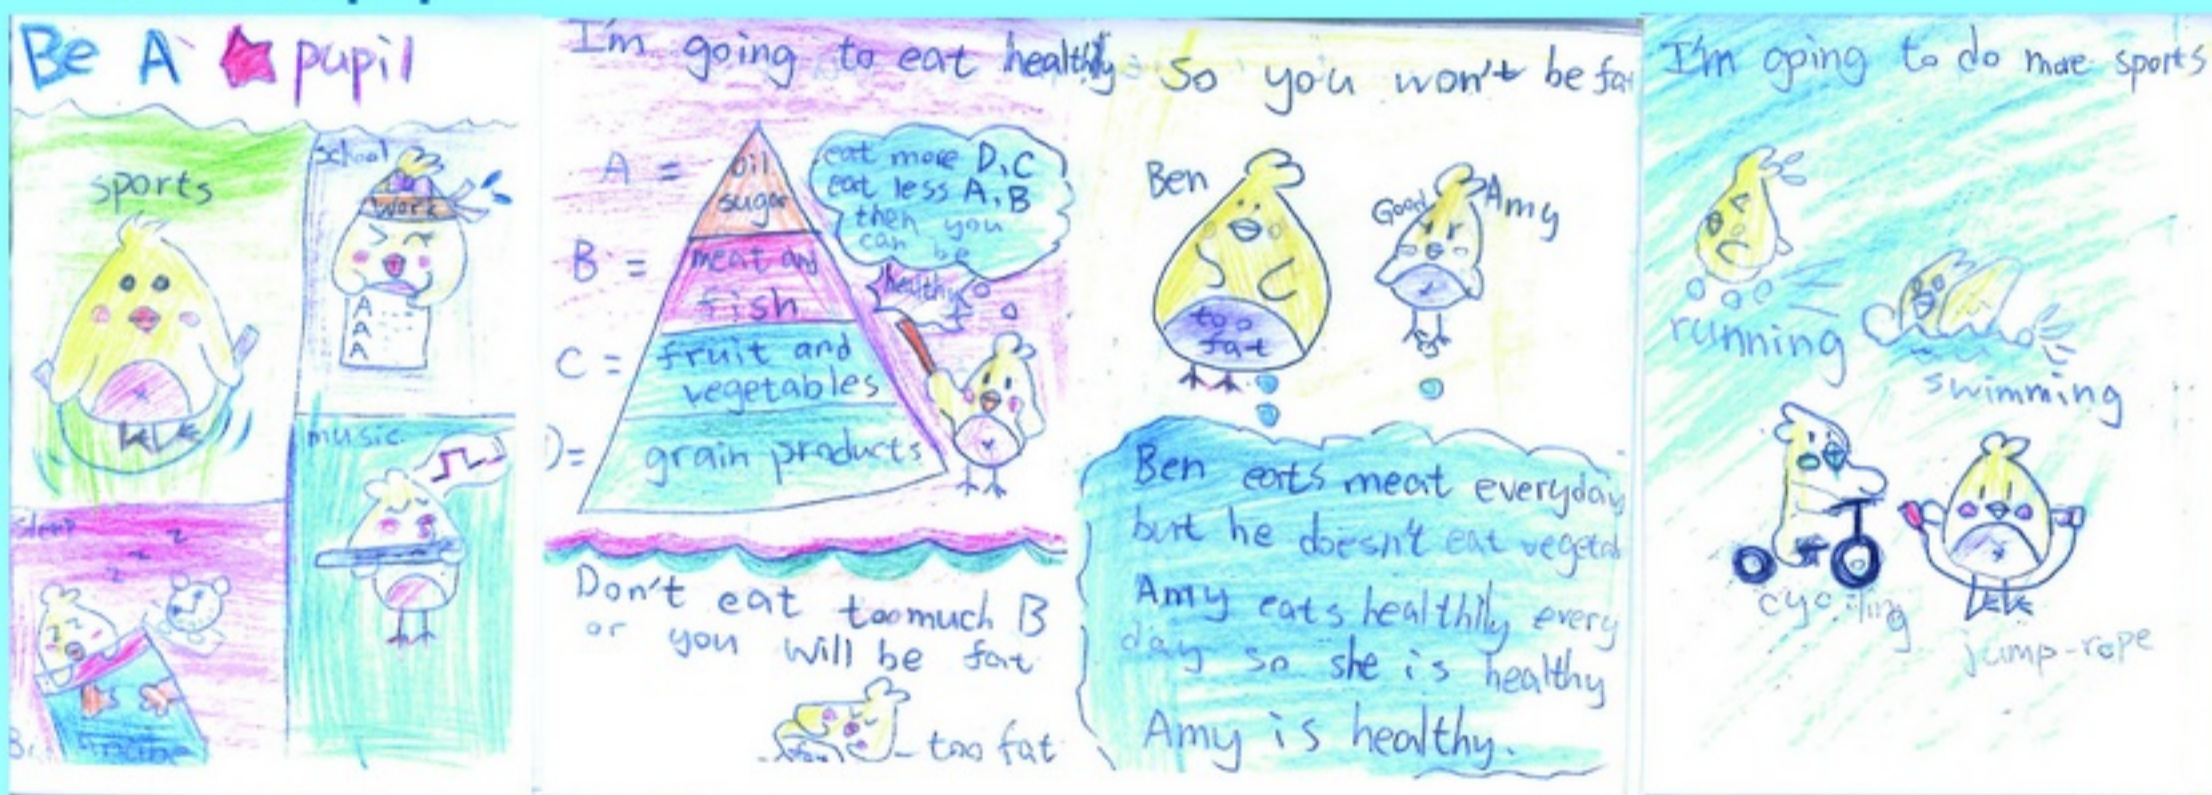 Be A pupil
sports
school
work
A
A
A
music
sleep
z
z
z
I'm going to eat healthily
A =
oil
sugar
B =
meat and
fish
C =
fruit and
vegetables
D=
grain products
eat more D,C
eat less A,B
then you
can be
healthy
Don't eat too much B
or you will be fat
too fat
So you won't be fa
Ben
too
fat
Good
Amy
Ben eats meat everyday
but he doesn't eat vegetab
Amy eats healthily every
day so she is healthy
Amy is healthy.
I'm going to do more sports
running
swimming
cycling
jump-rope